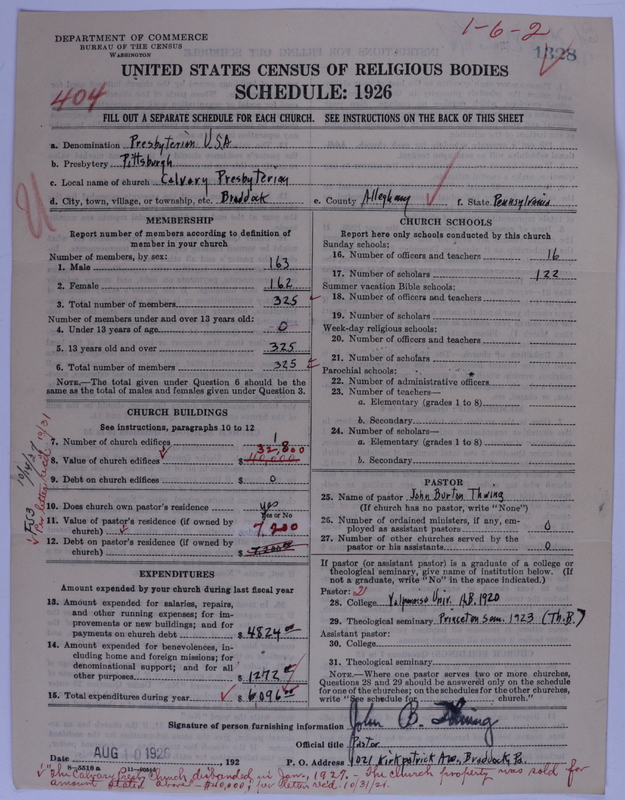 1-6-2
1328
DEPARTMENT OF COMMERCE
BUREAU OF THE CENSUS
WASHINGTON
UNITED STATES CENSUS OF RELIGIOUS BODIES
SCHEDULE: 1926
404
FILL OUT A SEPARATE SCHEDULE FOR EACH CHURCH. SEE INSTRUCTIONS ON THE BACK OF THIS SHEET
a. Denomination Presbyterian U.S.A.
b. Presbytery Pittsburgh
c. Local name of church Calvary Presbyterian
d. City, town, village, or township, etc. Braddock e. County Allegheny f. State Pennsylvania
MEMBERSHIP
Report number of members according to definition of
member in your church
Number of members, by sex:
1. Male 163
2. Female 162
3. Total number of members 325
Number of members under and over 13 years old:
4. Under 13 years of age 0
5. 13 years old and over 325
6. Total number of members 325
NOTE.—The total given under Question 6 should be the
same as the total of males and females given under Question 3.
CHURCH BUILDINGS
See instructions, paragraphs 10 to 12
7. Number of church edifices 1
32,800
8. Value of church edifices $ 40,000
9. Debt on church edifices $ 0
10. Does church own pastor's residence yes
Yes or No
11. Value of pastor's residence (if owned by
church) 7,200
12. Debt on pastor's residence (if owned by
church) $ 7,200.00
EXPENDITURES
Amount expended by your church during last fiscal year
13. Amount expended for salaries, repairs,
and other running expenses; for im-
provements or new buildings; and for
payments on church debt $ 4824.00
14. Amount expended for benevolences, in-
cluding home and foreign missions; for
denominational support; and for all
other purposes 1272
15. Total expenditures during year $ 6,096.00
CHURCH SCHOOLS
Report here only schools conducted by this church
Sunday schools:
16. Number of officers and teachers 16
17. Number of scholars 122
Summer vacation Bible schools:
18. Number of officers and teachers
19. Number of scholars
Week-day religious schools:
20. Number of officers and teachers
21. Number of scholars
Parochial schools:
22. Number of administrative officers
23. Number of teachers—
a. Elementary (grades 1 to 8)
b. Secondary
24. Number of scholars—
a. Elementary (grades 1 to 8)
b. Secondary
PASTOR
25. Name of pastor John Burton Thwing
(If church has no pastor, write "None")
26. Number of ordained ministers, if any, em-
ployed as assistant pastors 0
27. Number of other churches served by the
pastor or his assistants 0
If pastor (or assistant pastor) is a graduate of a college or
theological seminary, give name of institution below. (If
not a graduate, write "No" in the space indicated.)
Pastor: 21
28. College Valparaiso Univ. A.B. 1920
29. Theological seminary Princeton Sem. 1923 (Th.B.)
Assistant pastor:
30. College
31. Theological seminary
NOTE.—Where one pastor serves two or more churches,
Questions 28 and 29 should be answered only on the schedule
for one of the churches; on the schedules for the other churches,
write "See schedule for church."
Signature of person furnishing information John B. Thwing
Official title Pastor
Date AUG 10 1926, 192 P. O. Address 1021 Kirkpatrick Ave., Braddock, Pa.
8-5518a
"The Calvary Presby Church disbanded in Jan., 1927. - The church property was sold for
amount stated above - $40,000, per letter rec'd. 10/31/21.